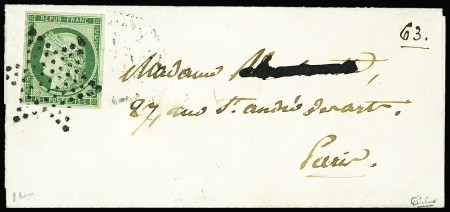 63.
REPUB. FRANC.
Madame
27, rue St. andré des arts.
Paris.